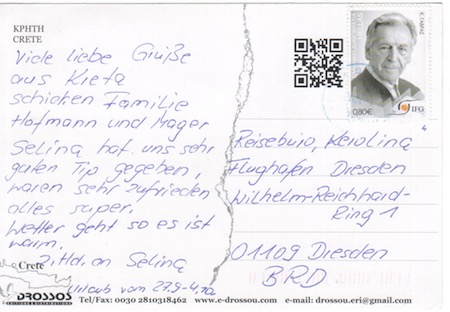 ΚΡΗΤΗ
CRETE
Viele liebe Grüße
aus Kreta
schicken Familie
Hofmann und Mager
Selina hat uns sehr
guten Tip gegeben,
waren sehr zufrieden
alles super.
Wetter geht so es ist
warm.
z.Hd. an Selina
Urlaub vom 27.9-4.10
Crete
DROSSOS
Tel/Fax: 0030 2810318462 www.e-drossou.com e-mail: drossou.eri@gmail.com
0,80€
IFG
Reisebüro „Karolina“
Flughafen Dresden
Wilhelm-Reichhard-
Ring 1
01109 Dresden
BRD